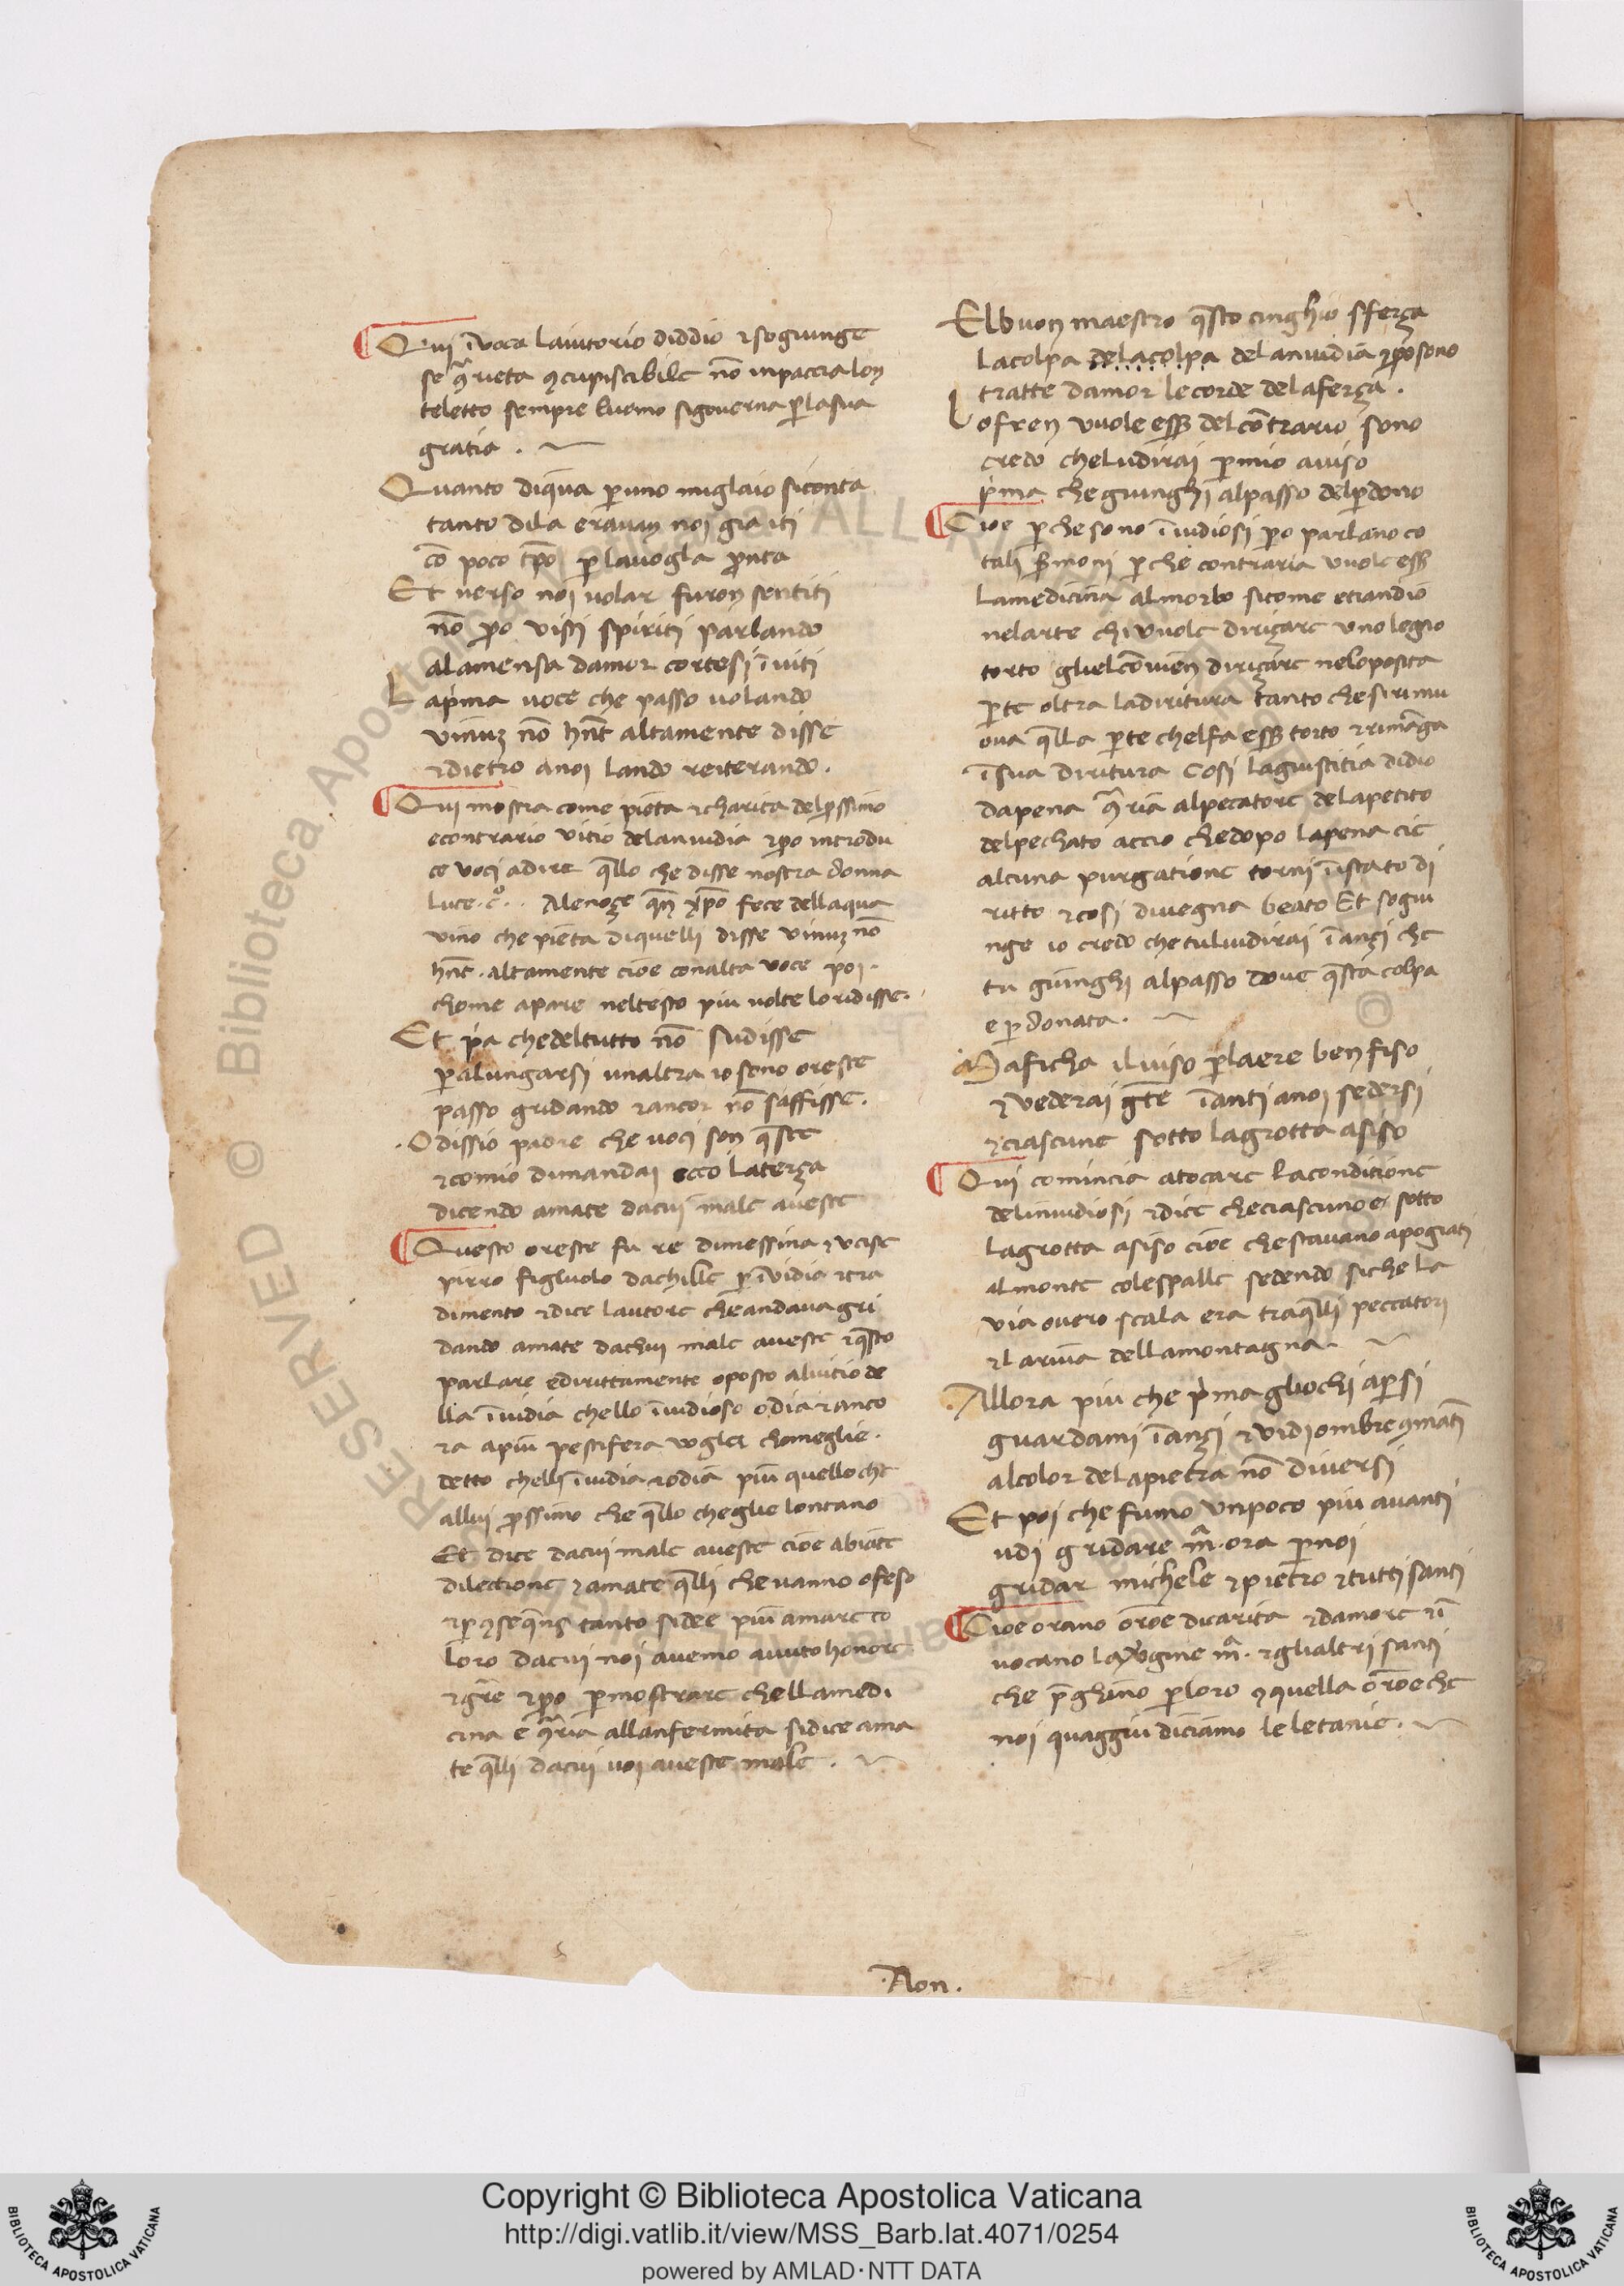 Qui īvoca laiutorio diddio ⁊ sogiunge
se ꝯ̄rieta ꝯcupiscibile nō inpaccia loy
teletto sempre luomo sigoverna ꝑ lasua
gratia.
Quanto diqua ꝑ uno miglaio siconta
tanto dila eravam noi gia iti
cō poco tp̄o ꝑ lavogla pronta
Et verso noi volar furon sentiti
nō ꝑo visti spiriti parlando
alamensa damor cortesi īviti
La pima voce che passo volando
vinuȝ nō hn̄t altamente disse
⁊ dietro anoi lando reiterando.
Qui mostra come pieta ⁊ charita del ꝓssimo
e contrario vitio delanvidia ⁊ ꝑo introdu
ce voci adire q̄llo che disse nostra donna
luce. c̊.. Alenoçe qn̄ xp̄o fece dellaqua
vino che pieta diquelli disse vinuȝ nō
hn̄t. altamente cioe conalta voce poi.
chome apare neltesto piu volte loridisse.
Et pia chedeltutto nō sudisse
ꝑ alungarsi unaltra io sono oreste
passo gridando ⁊ ancor nō saffisse.
.O dissio padre che voci son q̄ste
⁊ comio dimandai ecco laterça
dicendo amate dacui male aveste
Questo oreste fu re dimessina ⁊ ucise
pirro figluolo dachille ꝑ īvidia ⁊ tra
dimento ⁊ dice lautore cheandava gri
dando amate dachui male aveste ⁊ q̄sto
parlare edirittamente oposto alvitio de
lla īvidia chello īvidioso odia ⁊ anco
ra apiu pestifera vogla chomeglie.
detto chelli īvidia ⁊ odia piu quelloche
allui ꝓssimo che q̄llo cheglie lontano
Et dice dacui male aveste cioe abiate
dilectione ⁊ amate q̄lli che vanno ofeso
⁊ ꝑ ꝯseq̄ns tanto sidee piu amare co
loro dacui noi avemo avuto honore
⁊ gr̄e ⁊ ꝑo ꝑ mostrare chellamedi
cina e ꝯ̄ria allanfermita sidice ama
te q̄lli dacui voi aveste male.
El buon maestro q̄sto cinghio sferça
lacolpa delacolpa delanvidia ⁊ ꝑo sono
tratte damor lecorde delaferça.
Lo fren vuole esser del cōtrario suno
credo cheludirai ꝑ mio aviso
pima che giunghi alpasso delꝑdono
Cioe ꝑche sono īvidiosi ꝑo parlano co
tali sermoni ꝑche contraria vuole esser
lamedicina almorbo sicome etiandio
nelarte chi vuole diriçare uno legno
torto gliel cōvien diriçare neloposita
ꝑte oltra ladiritura tanto che si rimu
ova q̄lla ꝑte chelfa esser torto ⁊ rimāga
īsua diritura Cosi lagiustitia didio
dapena ꝯ̄ria alpecatore delapetito
delpechato accio chedopo lapena cie
alcuna purgatione torni īstato di
ritto ⁊ cosi divegna beato Et sogiu
nge io credo che tuludirai īançi che
tu giunghi alpasso dove q̄sta colpa
e ꝑdonata.
Ma ficha ilviso ꝑ laere ben fiso
⁊ vederai gēte īanti anoi sedersi
⁊ ciascune sotto lagrotta asiso
Qui comincia atocare laconditione
delinvidiosi ⁊ dice checiascuno e sotto
lagrotta asiso cioe chestavano apogiati
almonte colespalle sedendo siche la
via overo scala era traq̄lli peccatori
⁊ lariva dellamontagna.
Allora piu che pima gliochi aꝑsi
guardami īançi ⁊ vidi ombre ꝯ māti
alcolor delapietra nō diversi
Et poi che fumo unpoco piu avanti
udi gridare m̄. ora ꝑ noi
gridar michele ⁊ pietro ⁊ tutti santi
Cioe orano orōe dicarita ⁊ damore ⁊ ī
vocano lavirgine m̄. ⁊ glialtri santi
che p̄ghino ꝑ loro ꝯ quella orōe che
noi quaggiu diciamo le letanie.
.Non.
Copyright © Biblioteca Apostolica Vaticana
http://digi.vatlib.it/view/MSS_Barb.lat.4071/0254
powered by AMLAD·NTT DATA
BIBLIOTECA APOSTOLICA VATICANA
BIBLIOTECA APOSTOLICA VATICANA